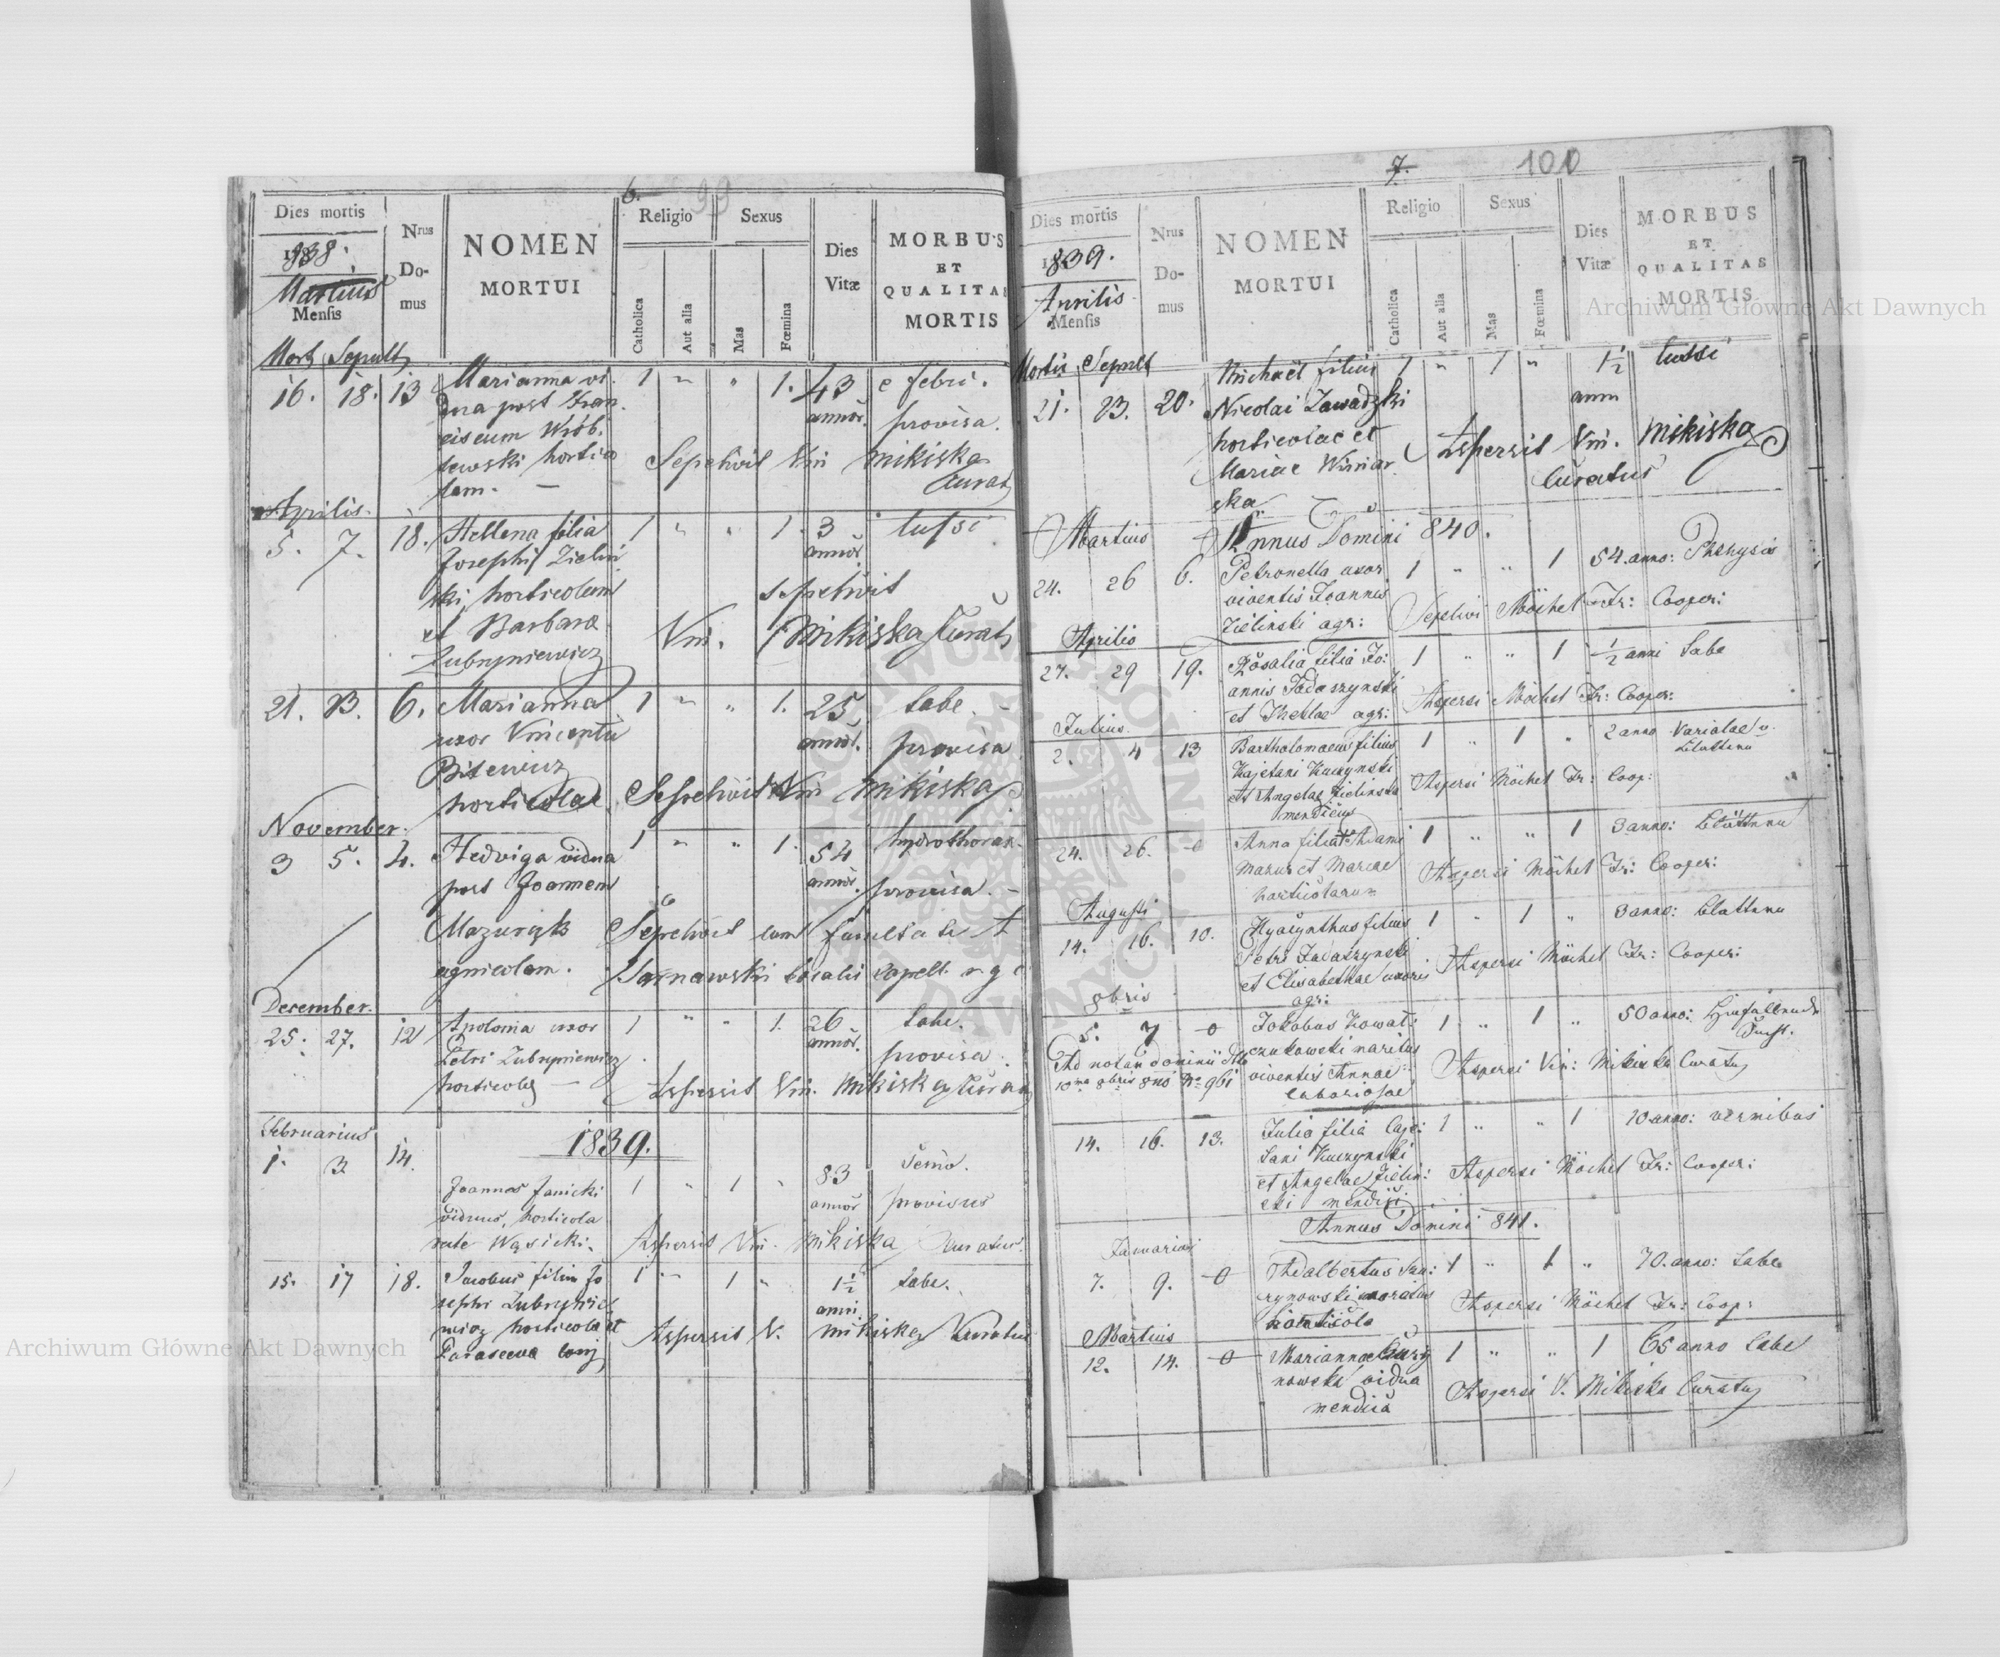 6. 99
Dies mortis
1838.
Martius
Mensis
Nrus
Do-
mus
NOMEN
MORTUI
Religio
Catholica
Aut alia
Sexus
Mas
Fœmina
Dies
Vitæ
MORBUS
ET
QUALITAS
MORTIS
Mort Sepult
16. 18. 13 Marianna vi- 1 " " 1. 43 e febri.
dua post Fran- annor. provisa.
ciscum Wrób-
lewski hortico Sepelivit Vin Mikiska
lam. — Curat
Aprilis.
5. 7. 18. Hellena filia 1 " " 1. 3 tussi
Josephi Zielin annor.
ski horticolam sepelivit
et Barbara Vin. Mikiska Curat
Zubryniewicz
21. 23. 6. Marianna 1 " " 1. 25 labe. -
uxor Vincentii annor. provisa
Bitewicz
horticolae. Sepelivit Vin Mikiska
November.
3 5. 4. Hedviga vidua 1 " " 1. 54 hydrothorax.
post Joannem annor. provisa. -
Mazurczk Sepelivit cum facultate
agricolam. Tarnawski localis capell.
December.
25. 27. 12 Apolonia uxor 1 " " 1. 26 labe.
Petri Zubryniewicz annor. provisa.
horticolae — Aspersit Vin. Mikiska Curat
Februarius 1839.
1. 3 14. 83 senio.
Joannes Janicki 1 " 1 " annor provisus
viduus, horticola
recte Wąsicki. Aspersit Vin. Mikiska Curatus.
15. 17 18. Jacobus filius Jo 1 " 1 " 1½ labe.
sephi Zubrynie anni
wicz horticola et Aspersit V. Mikiska Curatus
Parasceva conj
7. 100
Dies mortis
1839.
Aprilis
Mensis
Nrus
Do-
mus
NOMEN
MORTUI
Religio
Catholica
Aut alia
Sexus
Mas
Fœmina
Dies
Vitæ
MORBUS
ET
QUALITAS
MORTIS
Mortis Sepult
21. 23. 20. Michaël filius 1 " 1 " 1½ tussi
Nicolai Zawadzki anni
horticolae et Aspersit Vin. Mikiska
Mariae Winiar Curatus
ska
Martius Annus Domini 840.
24. 26 6. Petronella uxor 1 " " 1 54. anno: Phthysis
viventis Joannis
Zielinski agr: Sepelivi Möchel Fr: Cooper:
Aprilis
27. 29 19. Rosalia filia Jo: 1 " " 1 ½ anni Labe
annis Jadaszynski
et Theklae agr: Aspersi Möchel Fr: Cooper:
Julius
2. 4 13 Bartholomaeus filius 1 " 1 " 2 anno Variolae u.
Kajetani Kuczynski Blattern
et Angelae Zielinska Aspersi Möchel Fr: Coop:
mendicus
24. 26. Anna filia Adami 1 " " 1 3 anno: Blattern
Mazur et Mariae
horticolarum Aspersi Möchel Fr: Cooper:
Augusti
14. 16. 10. Hyacynthus filius 1 " 1 " 3 anno: Blattern
Petri Jadaszynski
et Elisabethae uxoris Aspersi Möchel Fr: Cooper:
agr:
8bris
5. 7 0 Jakobus Kowal: 1 " 1 " 50 anno: Hinfallende
Ad notam dominii czukowski maritus Sucht.
10ma 8bris 840 viventis Annae Aspersi Vin: Mikiska Curatus
laboriosae
14. 16. 13. Julia filia Caje: 1 " " 1 10 anno: vermibus
tani Kuczynski
et Angelae Zielin: Aspersi Möchel Fr: Cooper:
ski mendici
Annus Domini 841.
Januarias
7. 9. 0 Adalbertus 1 " 1 " 70. anno: Labe
rynowski maritus
horticola Aspersi Möchel Fr: Coop:
Martius
12. 14. 0 Marianna 1 " " 1 65 anno Labe
nowska vidua
mendica Aspersi V. Mikiska Curatus
Archiwum Główne Akt Dawnych
Archiwum Główne Akt Dawnych
ARCHIWUM GŁÓWNE AKT DAWNYCH